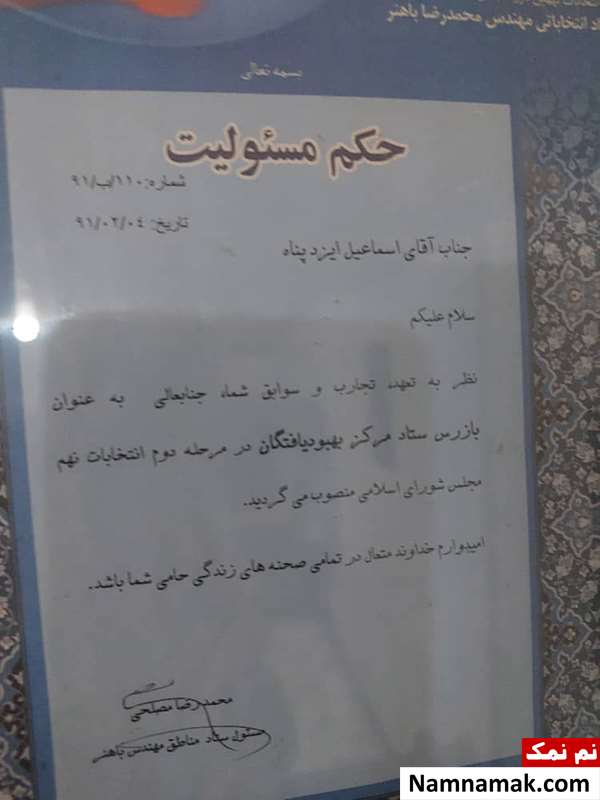 اد انتخاباتی مهندس محمدرضا باهنر
بسمه تعالی
حکم مسئولیت
شماره: ۱۱۰/ب/۹۱
تاریخ: ۹۱/۰۲/۰۴
جناب آقای اسماعیل ایزد پناه
سلام علیکم
نظر به تعهد، تجارب و سوابق شما، جنابعالی به عنوان
بازرس ستاد مرکز بهبودیافتگان در مرحله دوم انتخابات نهم
مجلس شورای اسلامی منصوب می گردید.
امیدوارم خداوند متعال در تمامی صحنه های زندگی حامی شما باشد.
محمدرضا مصلحی
مسئول ستاد مناطق مهندس باهنر
نم نمک
Namnamak.com